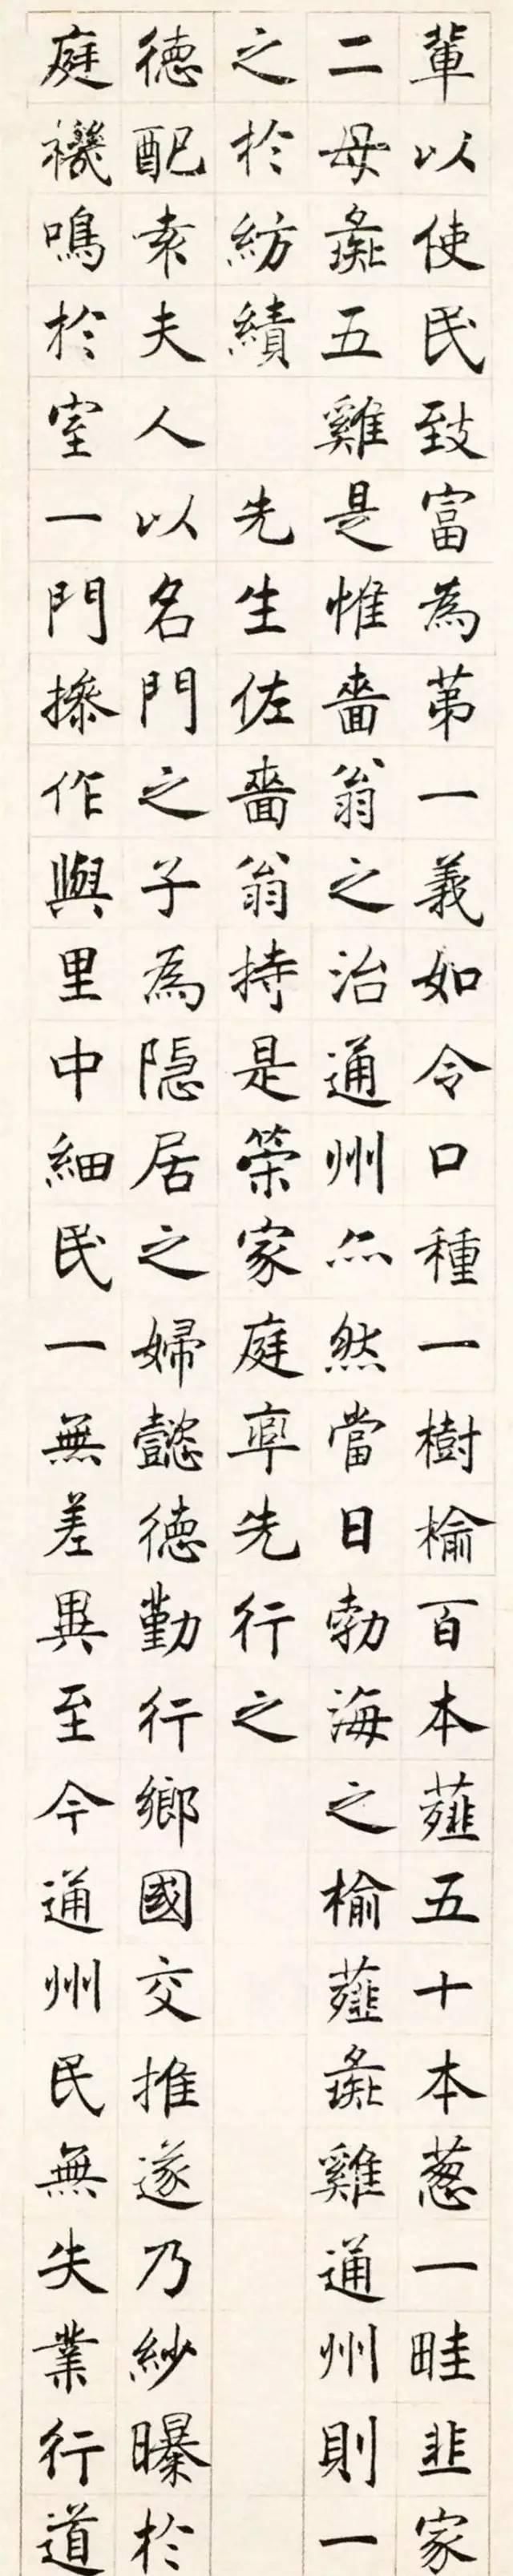 輩以使民致富為苐一義如令口種一樹榆百本薤五十本蔥一畦韭家
二母彘五雞是惟嗇翁之治通州亦然當日勃海之榆薤彘雞通州則一
之於紡績　先生佐嗇翁持是榮家庭率先行之
德配袁夫人以名門之子為隱居之婦懿德勤行鄉國交推遂乃紗曝於
庭機鳴於室一門操作與里中細民一無差異至今通州民無失業行道